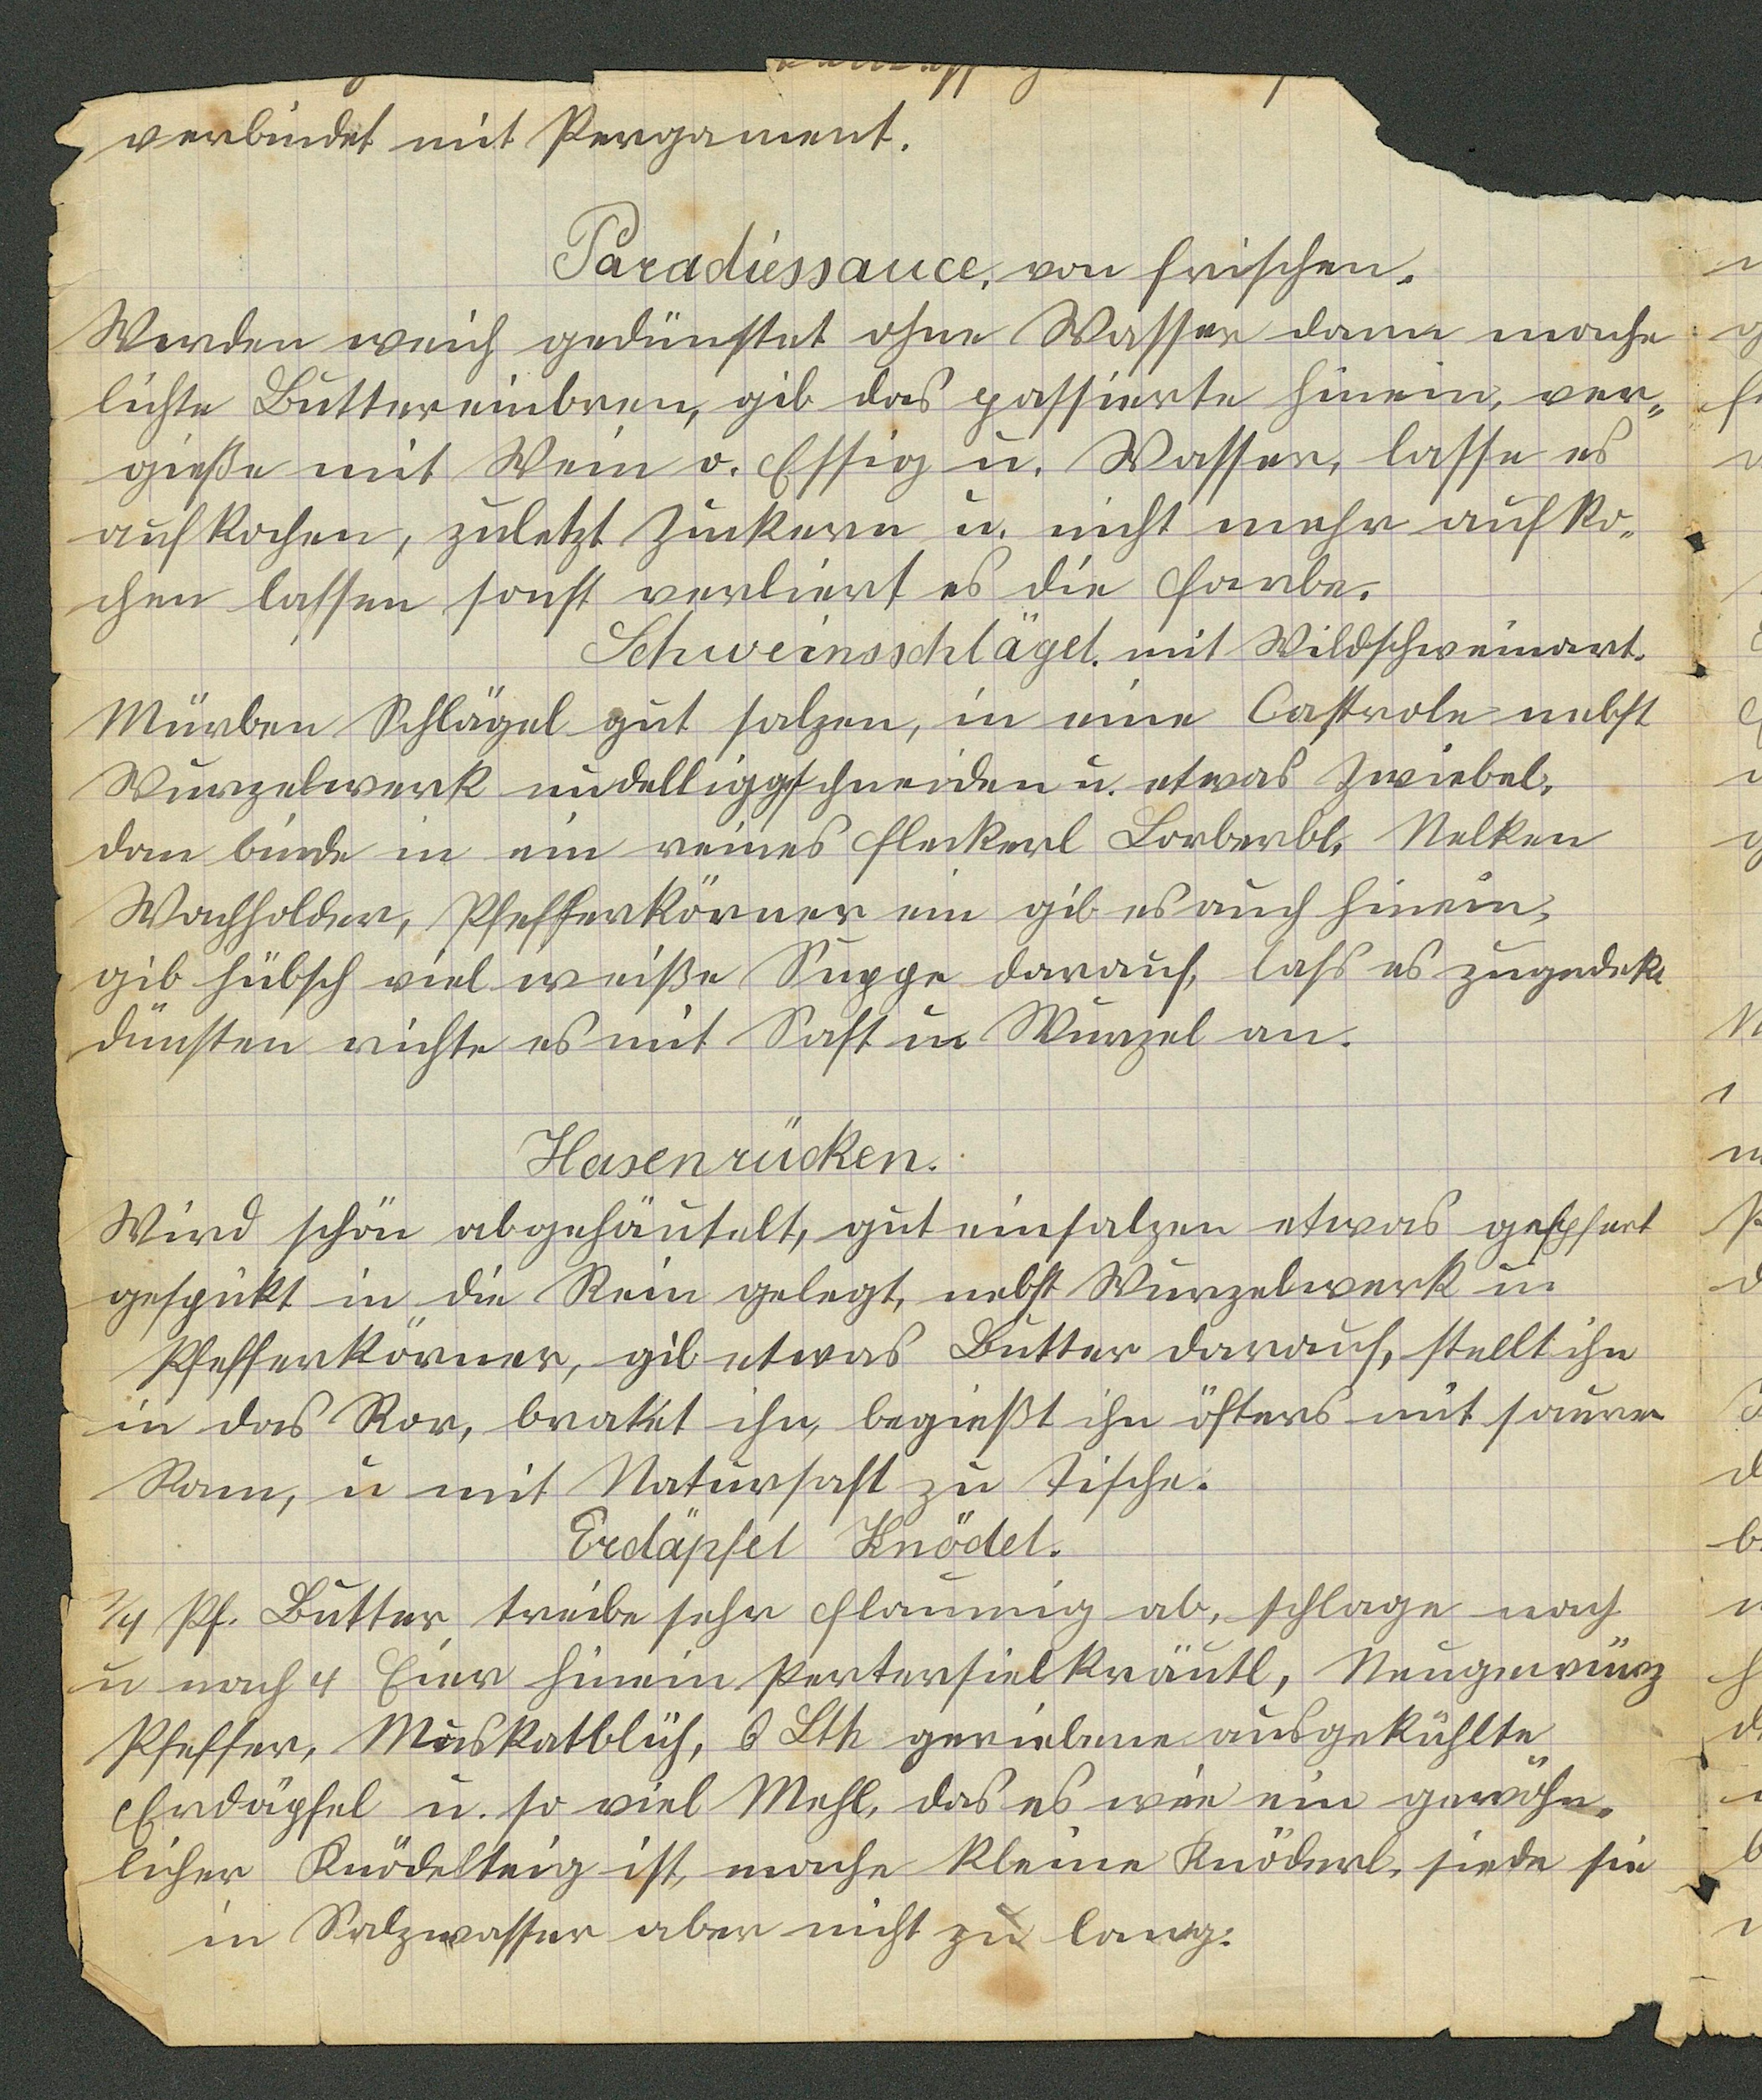 verbindet mit Pergament.
Paradiessauce, von frischen.
Werden weich gedünstet ohne Wasser dann mache
lichte Buttereinbren, gib das passierte hinein, ver„
gieße mit Wein o. Essig u. Wasser, lasse es
aufkochen, zuletzt Zuckern u. nicht mehr aufko„
chen lassen sonst verliert es die Farbe.
Schweinsschlägel. mit Wildschweinart.
Mürben Schlägel gut salzen, in eine Castrole nebst
Wurzelwerk nudelligg schneiden u. etwas Zwiebel,
dan binde in ein reines Fleckerl Lorberbl. Nelken
Wachholder, Pfefferkörner ein gib es auch hinein,
gib hübsch viel weiße Suppe darauf, lass es zugedekt
dünsten richte es mit Saft u Wurzel an.
Hasenrücken.
Wird schön abgehäutelt, gut einsalzen etwas
gespikt in die Rein gelegt, nebst Wurzelwerk u
Pfefferkörner, gib etwas Butter darauf, stellt ihn
in das Ror, bratet ihn, begießt ihn öfters mit saurer
Ram, u mit Natursaft zu Tische.
Erdäpfel Knödel.
1/4 Pf. Butter treibe sehr flaumig ab, schlage nach
u nach 4 Eier hinein Pertersielkräutl, Neugewürz
Pfeffer, Muskatblüh, 6 Lth geriebene ausgekühlte
Erdäpfel u. so viel Mehl, das es wie ein gewöhn„
licher Knödelteig ist, mache kleine Knöderl, siede sie
in Salzwasser aber nicht zu lang.